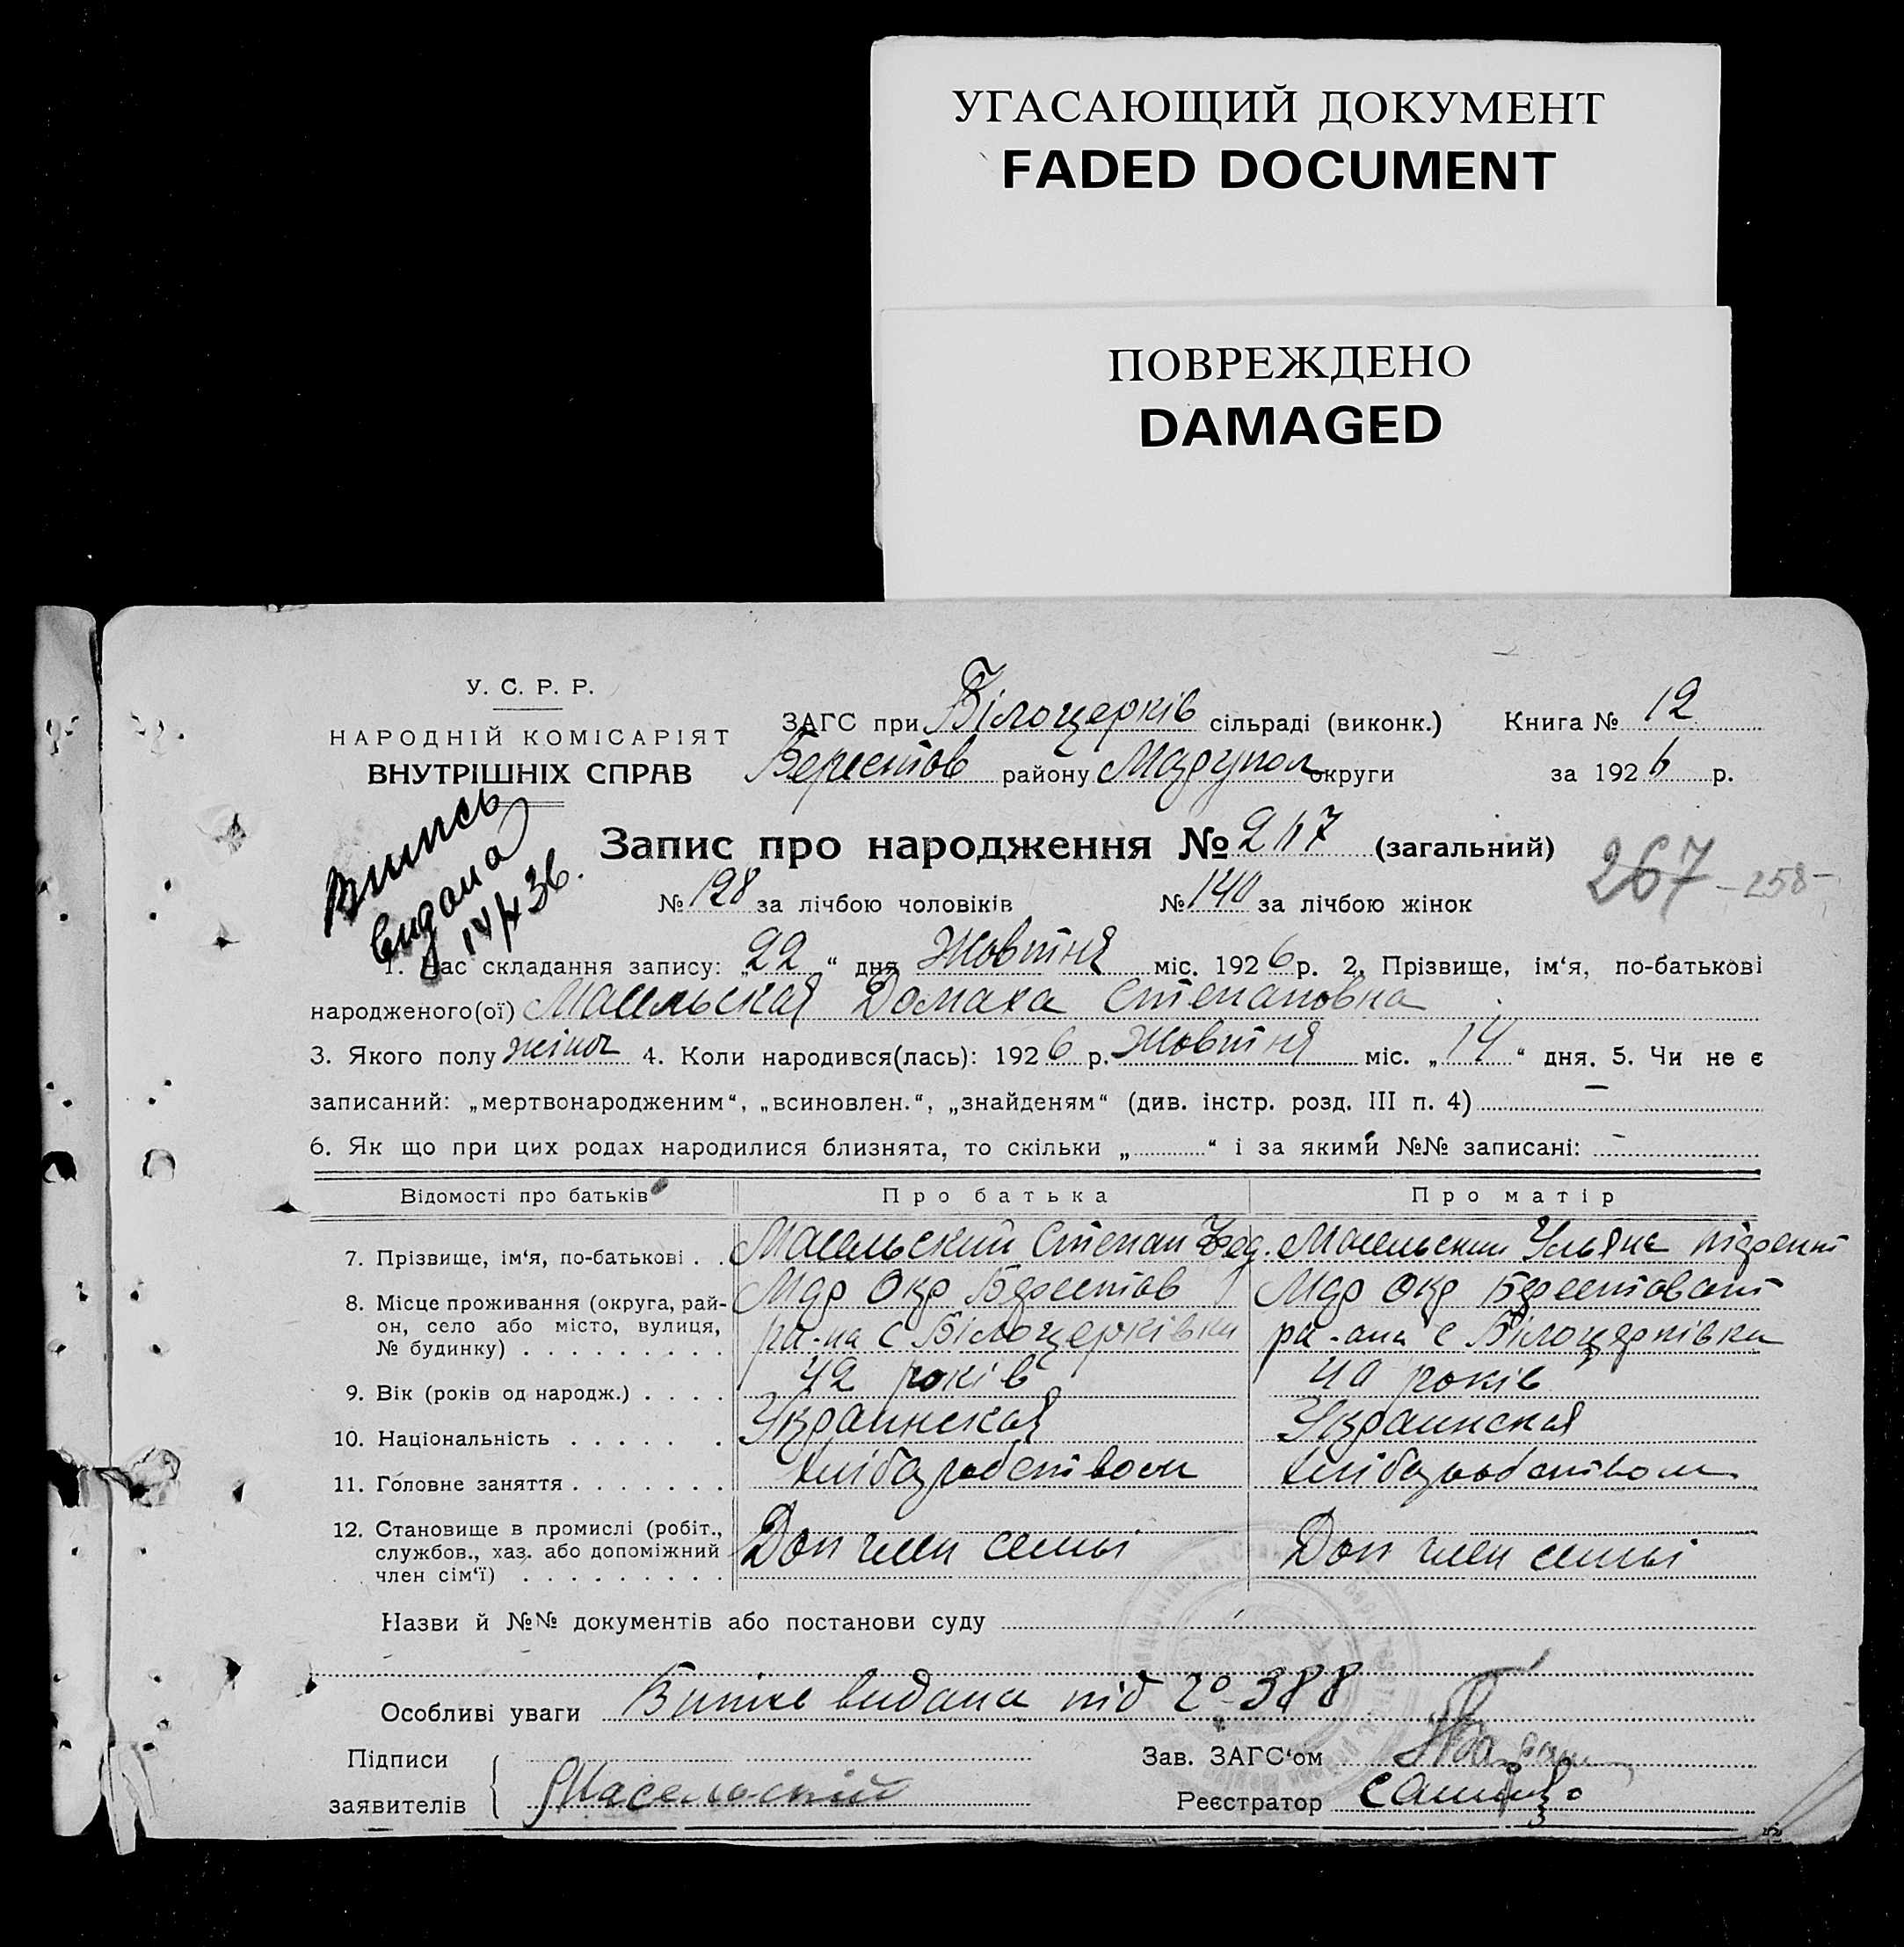 УГАСАЮЩИЙ ДОКУМЕНТ
FADED DOCUMENT
ПОВРЕЖДЕНО
DAMAGED
У. С. Р. Р.
НАРОДНІЙ КОМІСАРІЯТ
ВНУТРІШНІХ СПРАВ
ЗАГС при Білоцерків сільраді (виконк.) Книга № 12
Берестов району Маріупол округи за 1926 р.
Випись
видана
Запис про народження № (загальний)
267 -258-
№ 128 за лічбою чоловіків № 140 за лічбою жінок
1. Час складання запису: „22“ дня Жовтня міс. 1926 р. 2. Прізвище, ім‘я, по-батькові
народженого(ої) Масельская Домаха Степановна
3. Якого полу жіноч 4. Коли народився(лась): 1926 р. Жовтня міс. „14“ дня. 5. Чи не є
записаний: „мертвонародженим“, „всиновлен.“, „знайденям“ (див. інстр. розд. III п. 4) –
6. Як що при цих родах народилися близнята, то скільки „ “ і за якими №№ записані: –
Відомості про батьків Про батька Про матір
7. Прізвище, ім‘я, по-батькові . . Масельский Степан Фед. Масельский Ульяна
8. Місце проживання (округа, рай- Мар Окр Берестов Мар Окр
он, село або місто, вулиця, ра-на с Білоцерківки с Білоцерківки
№ будинку) . . . . . . . . .
9. Вік (років од народж.) . . . . 42 років 40 років
10. Національність . . . . . . . Украинская Украинская
11. Головне заняття . . . . . . . хлібаробством хлібаробством
12. Становище в промислі (робіт.,
службов., хаз. або допоміжний Доп член семьі Доп член семьі
член сім‘ї) . . . . . . . . .
Назви й №№ документів або постанови суду
Особливі уваги Випись видана під № 388
Підписи Зав. ЗАГС‘ом
заявителів Масельский Реєстратор